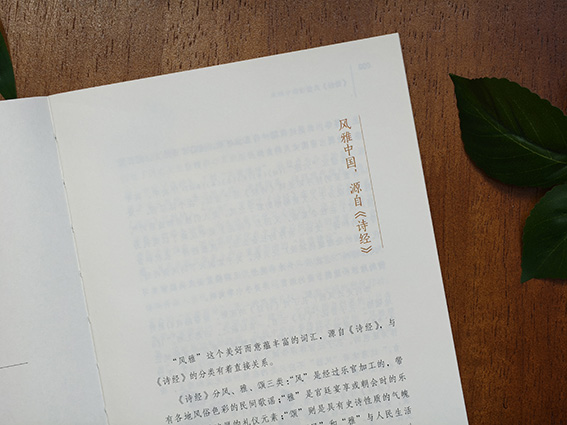 风雅中国，源自《诗经》
“风雅”这个美好而意蕴丰富的词汇，源自《诗经》，与
《诗经》的分类有着直接关系。
《诗经》分风、雅、颂三类：“风”是经过乐官加工的，带
有各地风俗色彩的民间歌谣；“雅”是宫廷宴享或朝会时的乐
的礼仪元素；“颂”则是具有史诗性质的气魄
和“雅”与人民生活